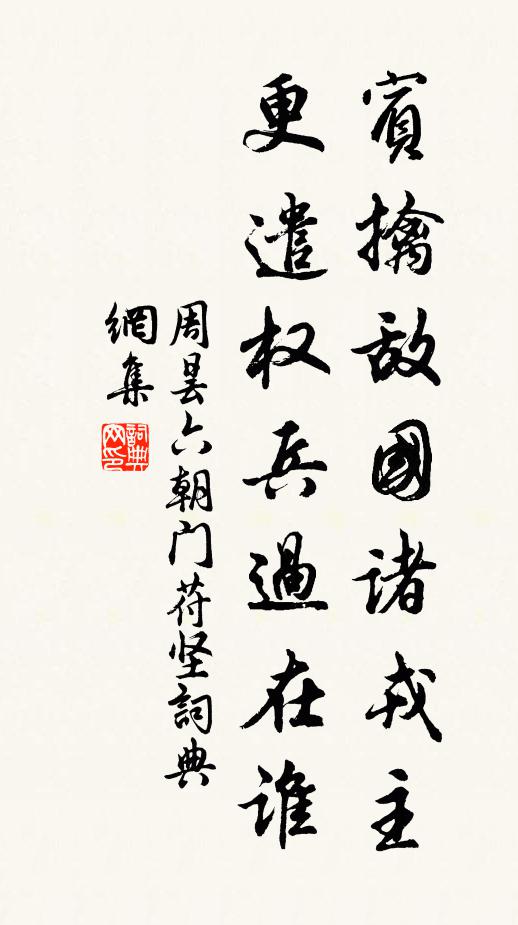 賓擒敌國諸戎主
更遣权兵過在谁
周昙六朝门苻坚詞典
網集
詞典网印